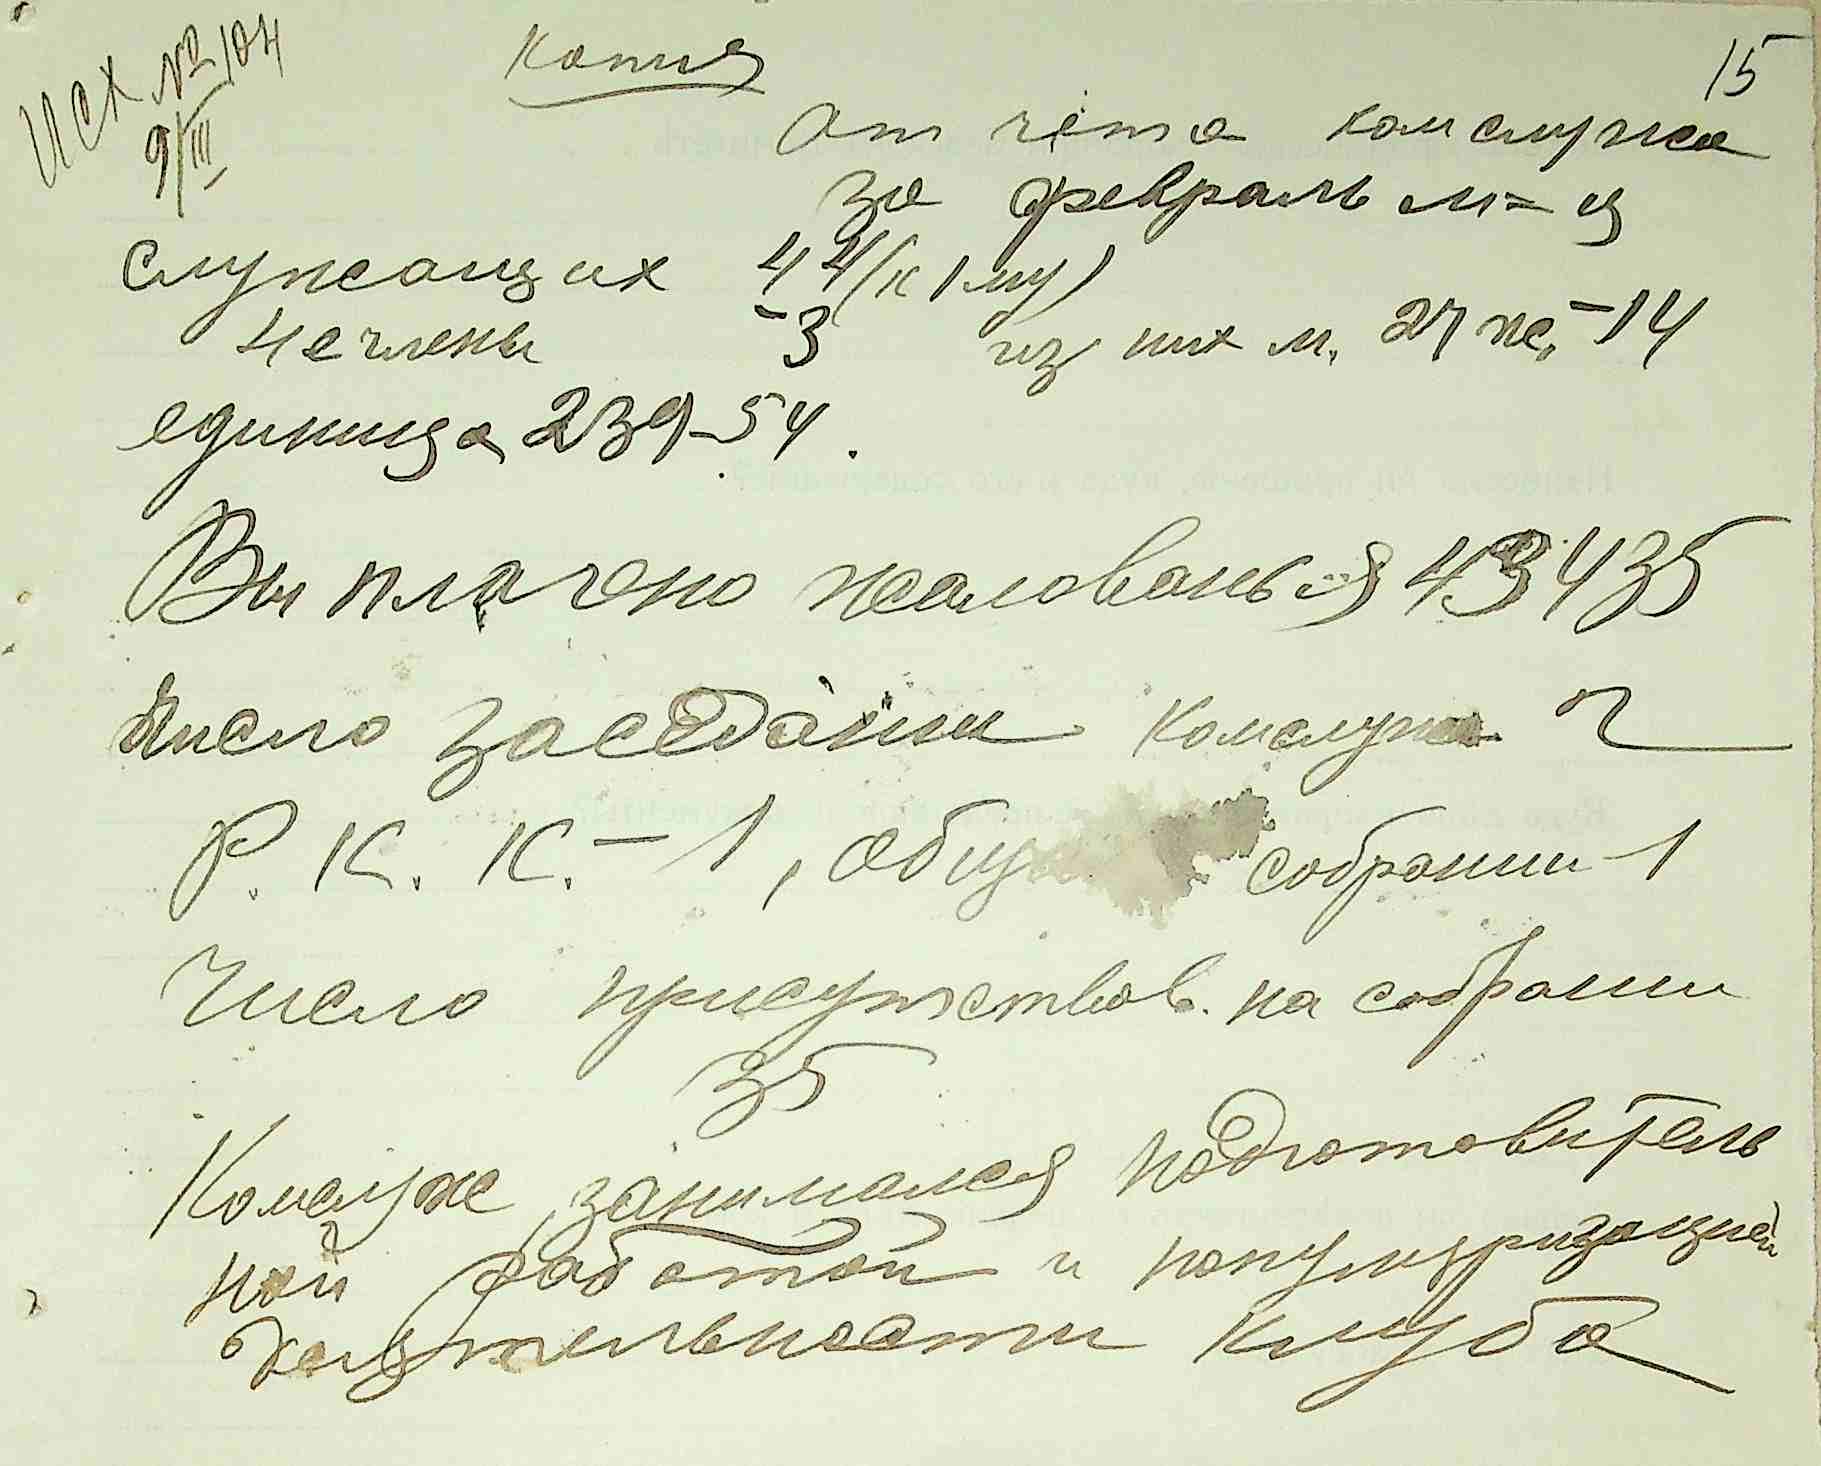 исх № 104
9/III
Копия
15
отчета комслужа
за февраль м-ц
служащих 44 (к 1 му)
не члены - 3 из них м. 27 ж. - 14
единица 239-54.
Выплачено жалованья 43435
Число заседании комслужа 2
Р. К. К. - 1, общ собрании - 1
Число присутствов. на собрании
35
Комслуж занимался подготовитель
ной работой и популяризацией
деятельности клуба